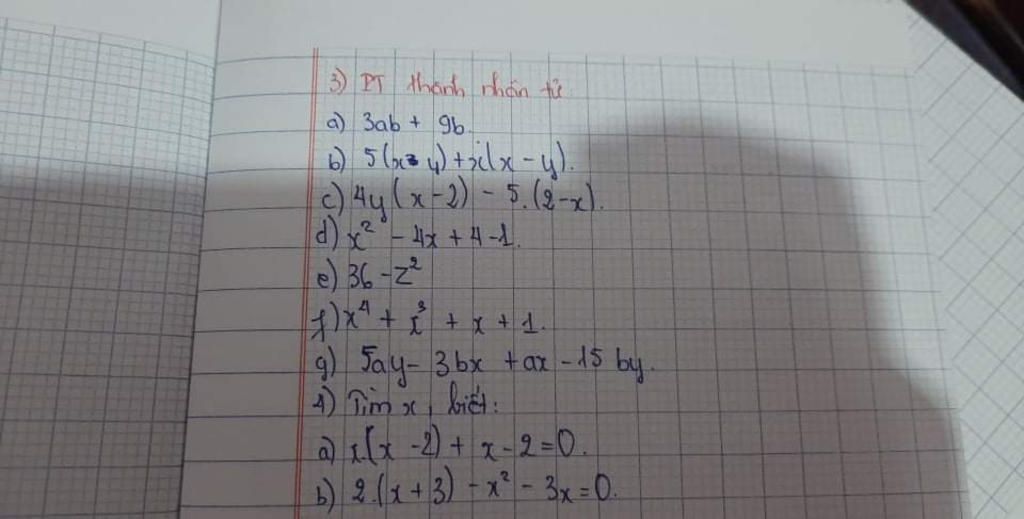 3) PT thành nhân tử
a) 3ab + 9b.
b) 5(x - y) + x(x - y).
c) 4y(x - 2) - 5.(2 - x).
d) x² - 4x + 4 - 1.
e) 36 - z²
f) x⁴ + x³ + x + 1.
g) 5ay - 3bx + ax - 15by.
4) Tìm x, biết:
a) x(x - 2) + x - 2 = 0.
b) 2.(x + 3) - x² - 3x = 0.